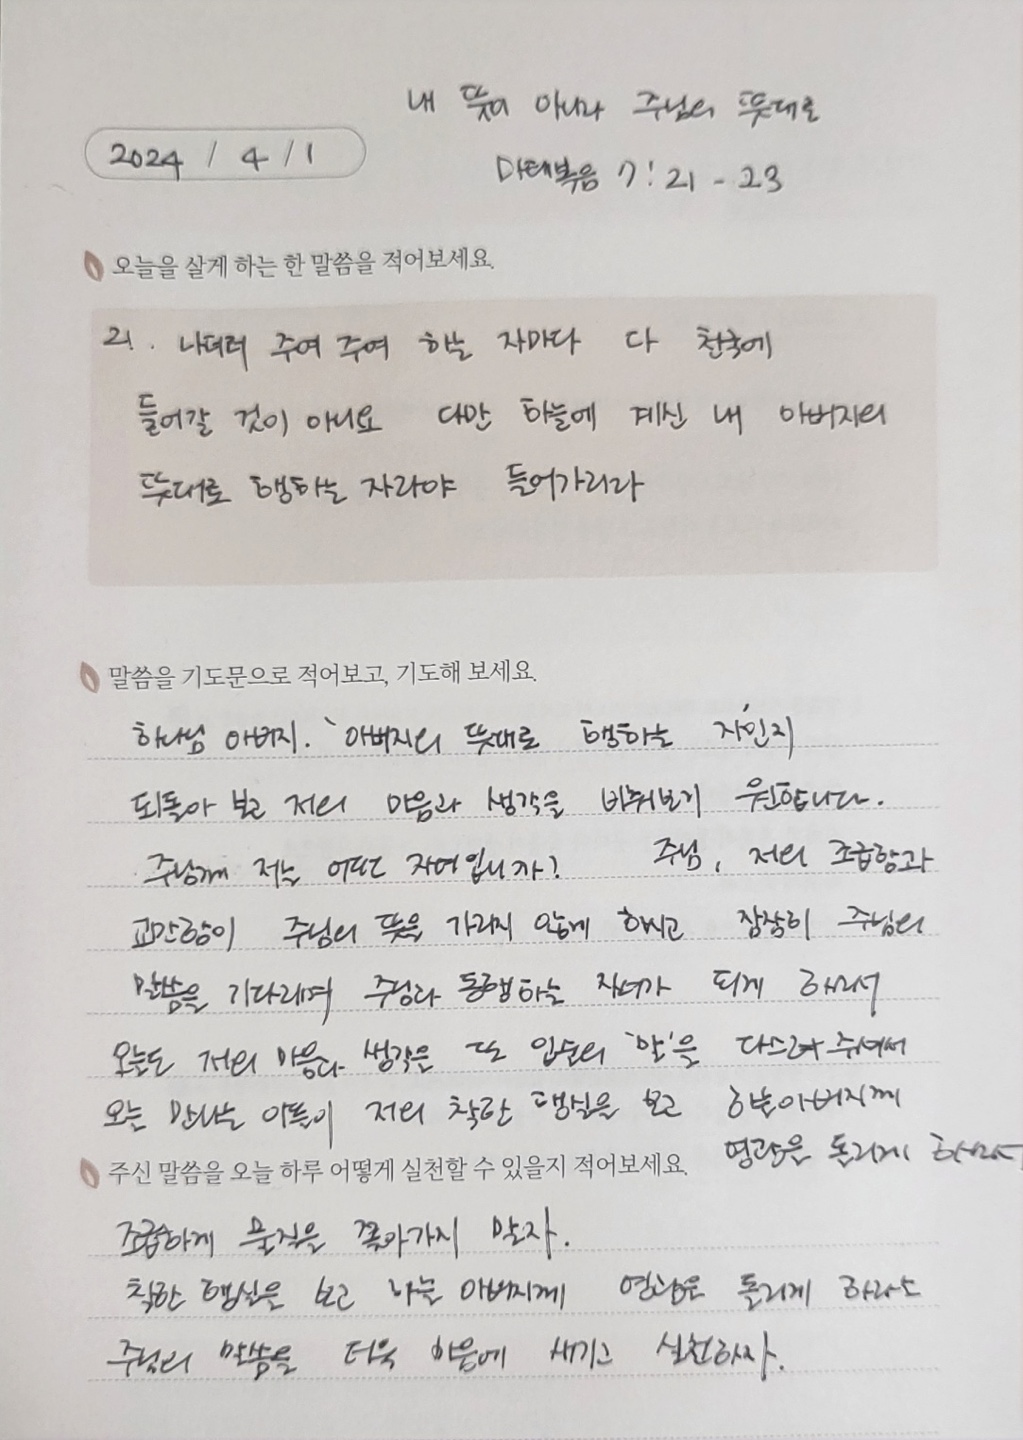 내 뜻이 아니라 주님의 뜻대로
2024 / 4 / 1
마태복음 7:21-23
오늘을 살게 하는 한 말씀을 적어보세요.
21. 나더러 주여 주여 하는 자마다 다 천국에
들어갈 것이 아니요 다만 하늘에 계신 내 아버지의
뜻대로 행하는 자라야 들어가리라
말씀을 기도문으로 적어보고, 기도해 보세요.
하나님 아버지. 아버지의 뜻대로 행하는 자인지
되돌아 보고 저의 마음과 생각을 바꿔보기 원합니다.
주님께 저는 어떤 자녀입니까? 주님, 저의 조급함과
교만함이 주님의 뜻을 가리지 않게 하시고 잠잠히 주님의
말씀을 기다리며 주님과 동행하는 자녀가 되게 하소서
오늘도 저의 마음과 생각을 또 입술의 '말'을 다스려 주셔서
오늘 만나는 이들이 저의 착한 행실을 보고 하늘아버지께
영광을 돌리게 하소서
주신 말씀을 오늘 하루 어떻게 실천할 수 있을지 적어보세요.
조급하게 물질을 쫓아가지 말자.
착한 행실을 보고 하늘 아버지께 영광을 돌리게 하라는
주님의 말씀을 더욱 마음에 새기고 실천하자.